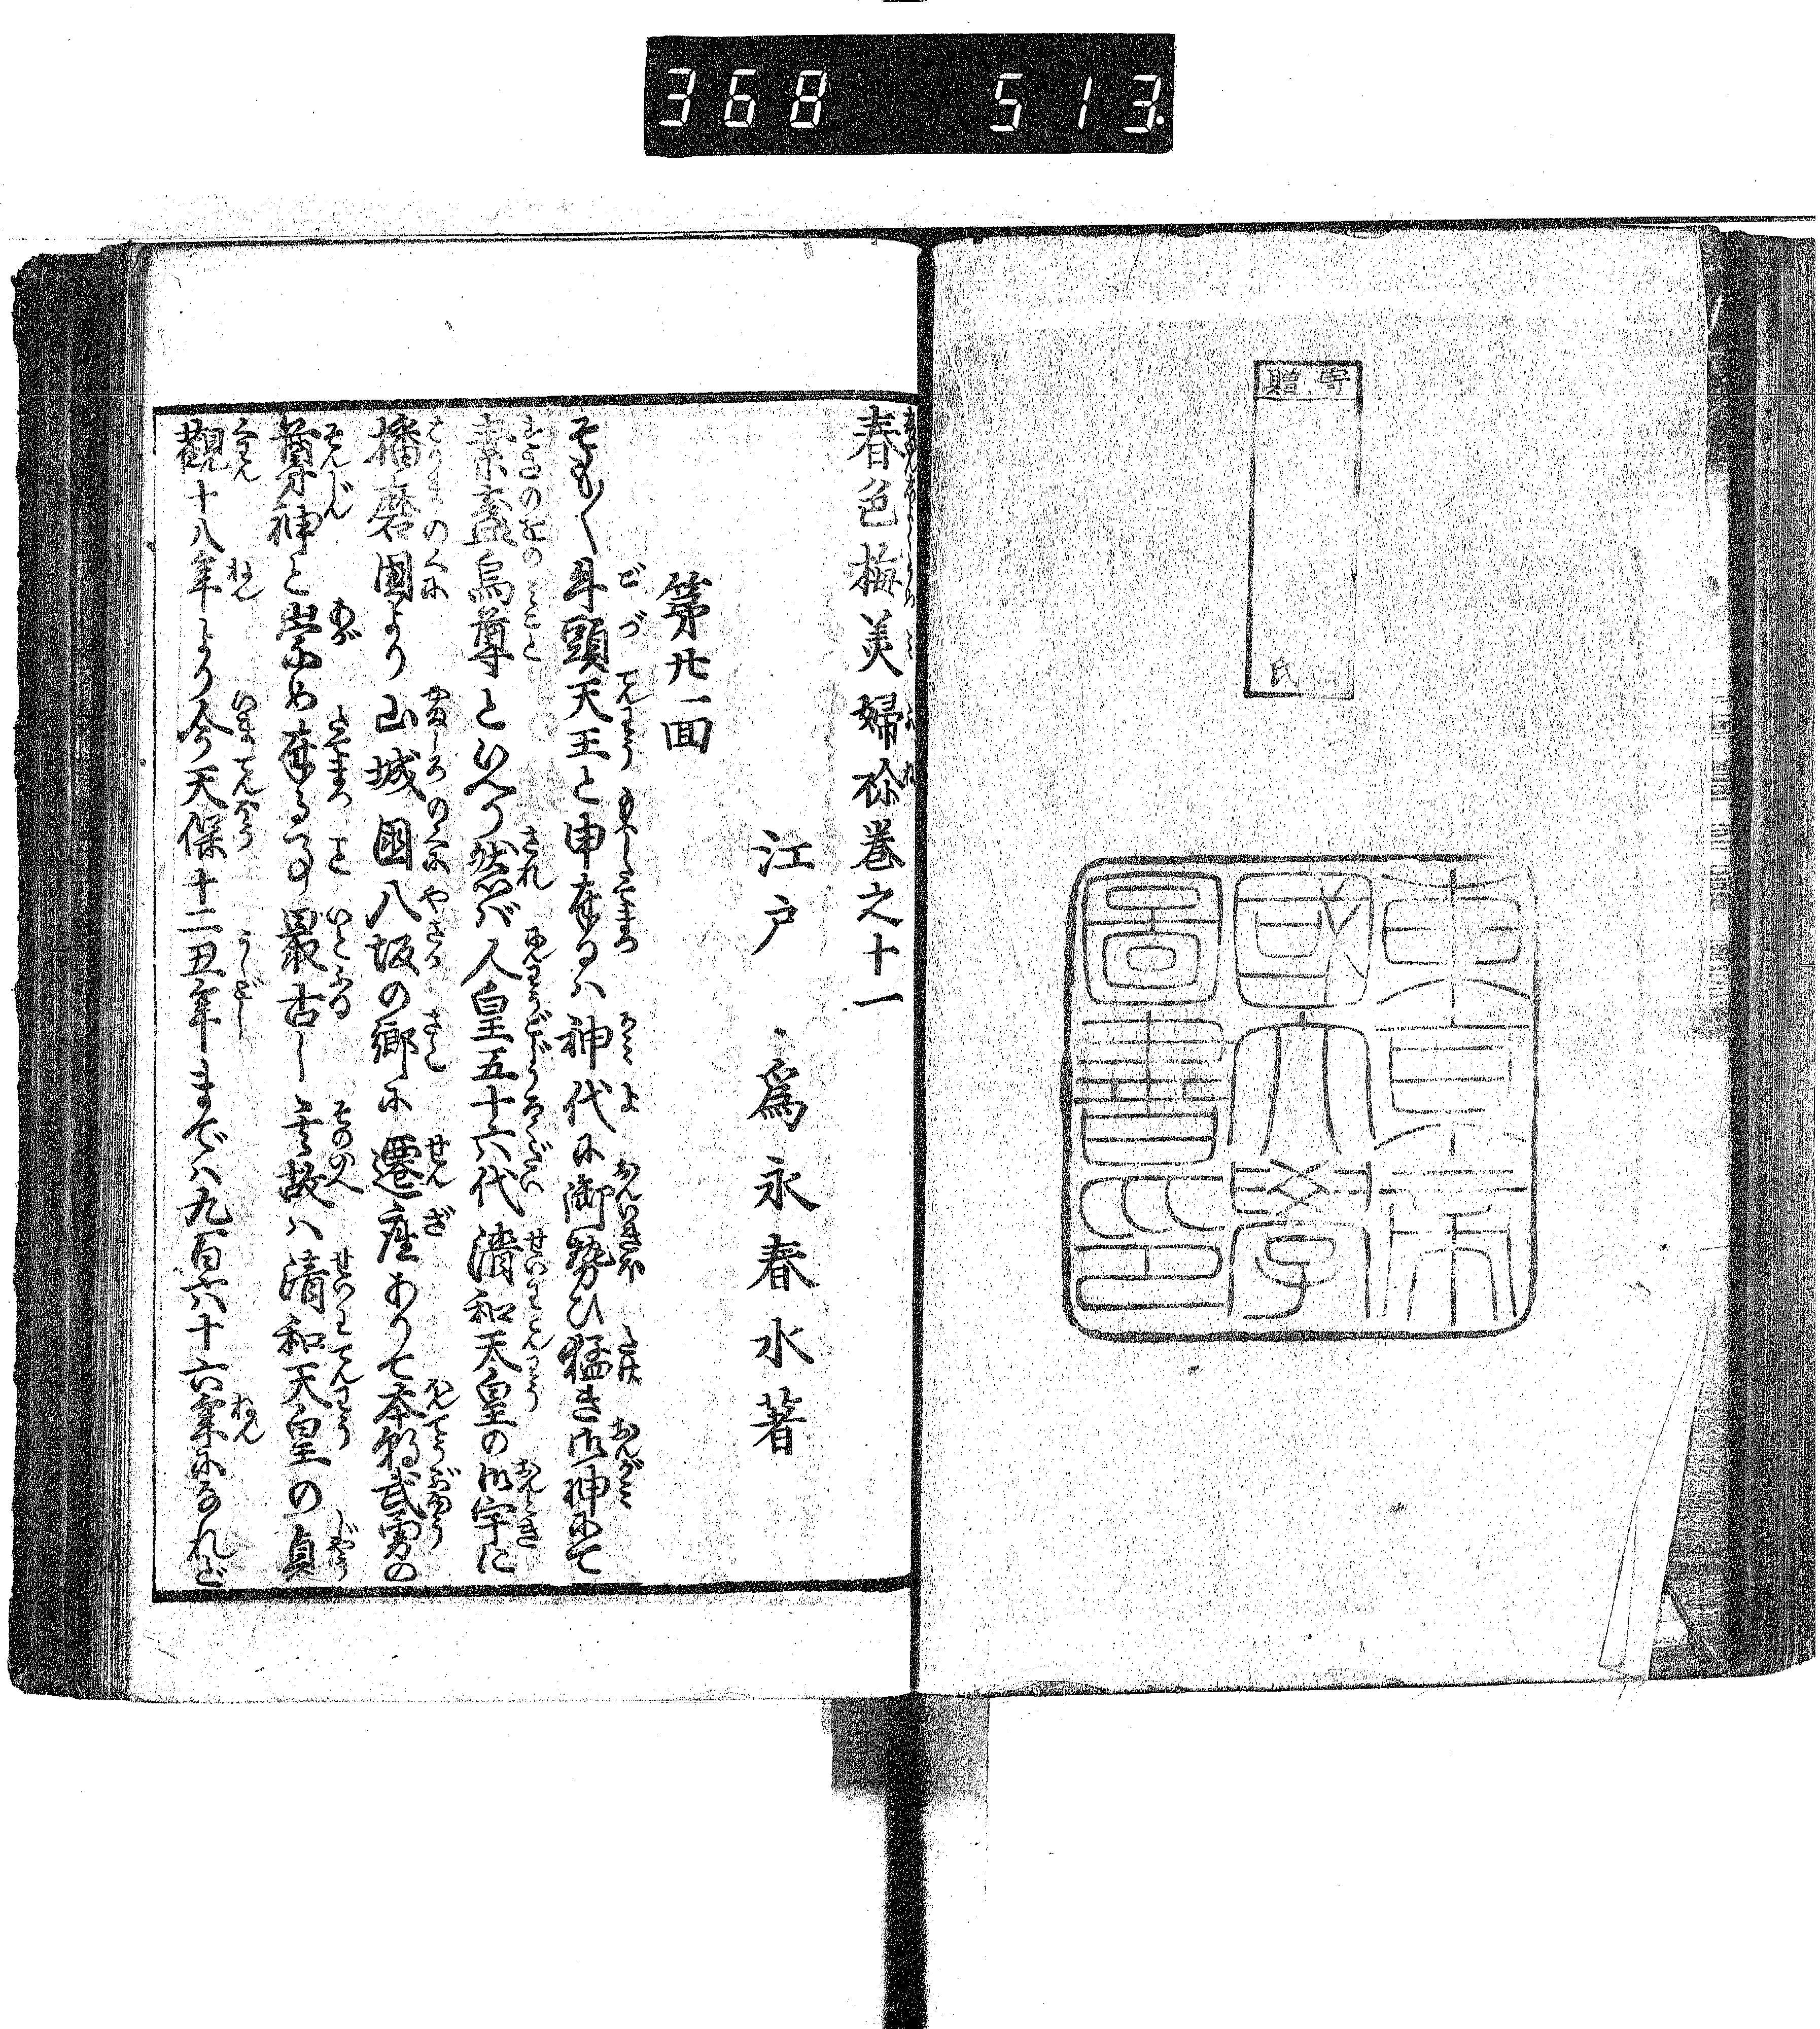 368 513
寄贈
氏
東京帝
國大學
圖書印
春色梅美婦祢巻之十一
江戸 爲永春水著
第廿一回
そも〳〵牛頭天王と申奉るハ神代に御勢ひ猛き御神にて
素盞烏尊といへり然バ人皇五十六代清和天皇の御宇に
播磨国より山城国八坂の郷に遷座ありて本朝武勇の
尊神と崇め奉る事最古し其故ハ清和天皇の貞
觀十八年より今天保十二丑年までハ九百六十六年になれど